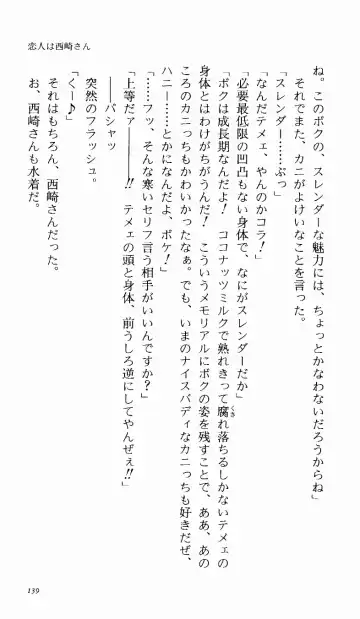 恋人は西崎さん
ね。このボクの、スレンダーな魅力には、ちょっとかなわないだろうからね」
それでまた、カニがよけいなことを言った。
「スレンダー……ぷっ」
「なんだテメェ、やんのかコラ！」
「必要最低限の凹凸もない身体で、なにがスレンダーだか」
「ボクは成長期なんだよ！　ココナッツミルクで熟れきって腐れ落ちるしかないテメェの
身体とはわけがちがうんだ！　こういうメモリアルにボクの姿を残すことで、ああ、あの
ころのカニっちもかわいかったなぁ。でも、いまのナイスバディなカニっちも好きだぜ、
ハニー……とかになんだよ、ボケ！」
「……フッ、そんな寒いセリフ言う相手がいいんですか？」
「上等だァ———!!　テメェの頭と身体、前うしろ逆にしてやんぜぇ!!」
——パシャッ
突然のフラッシュ。
「くー♪」
それはもちろん、西崎さんだった。
お、西崎さんも水着だ。
139